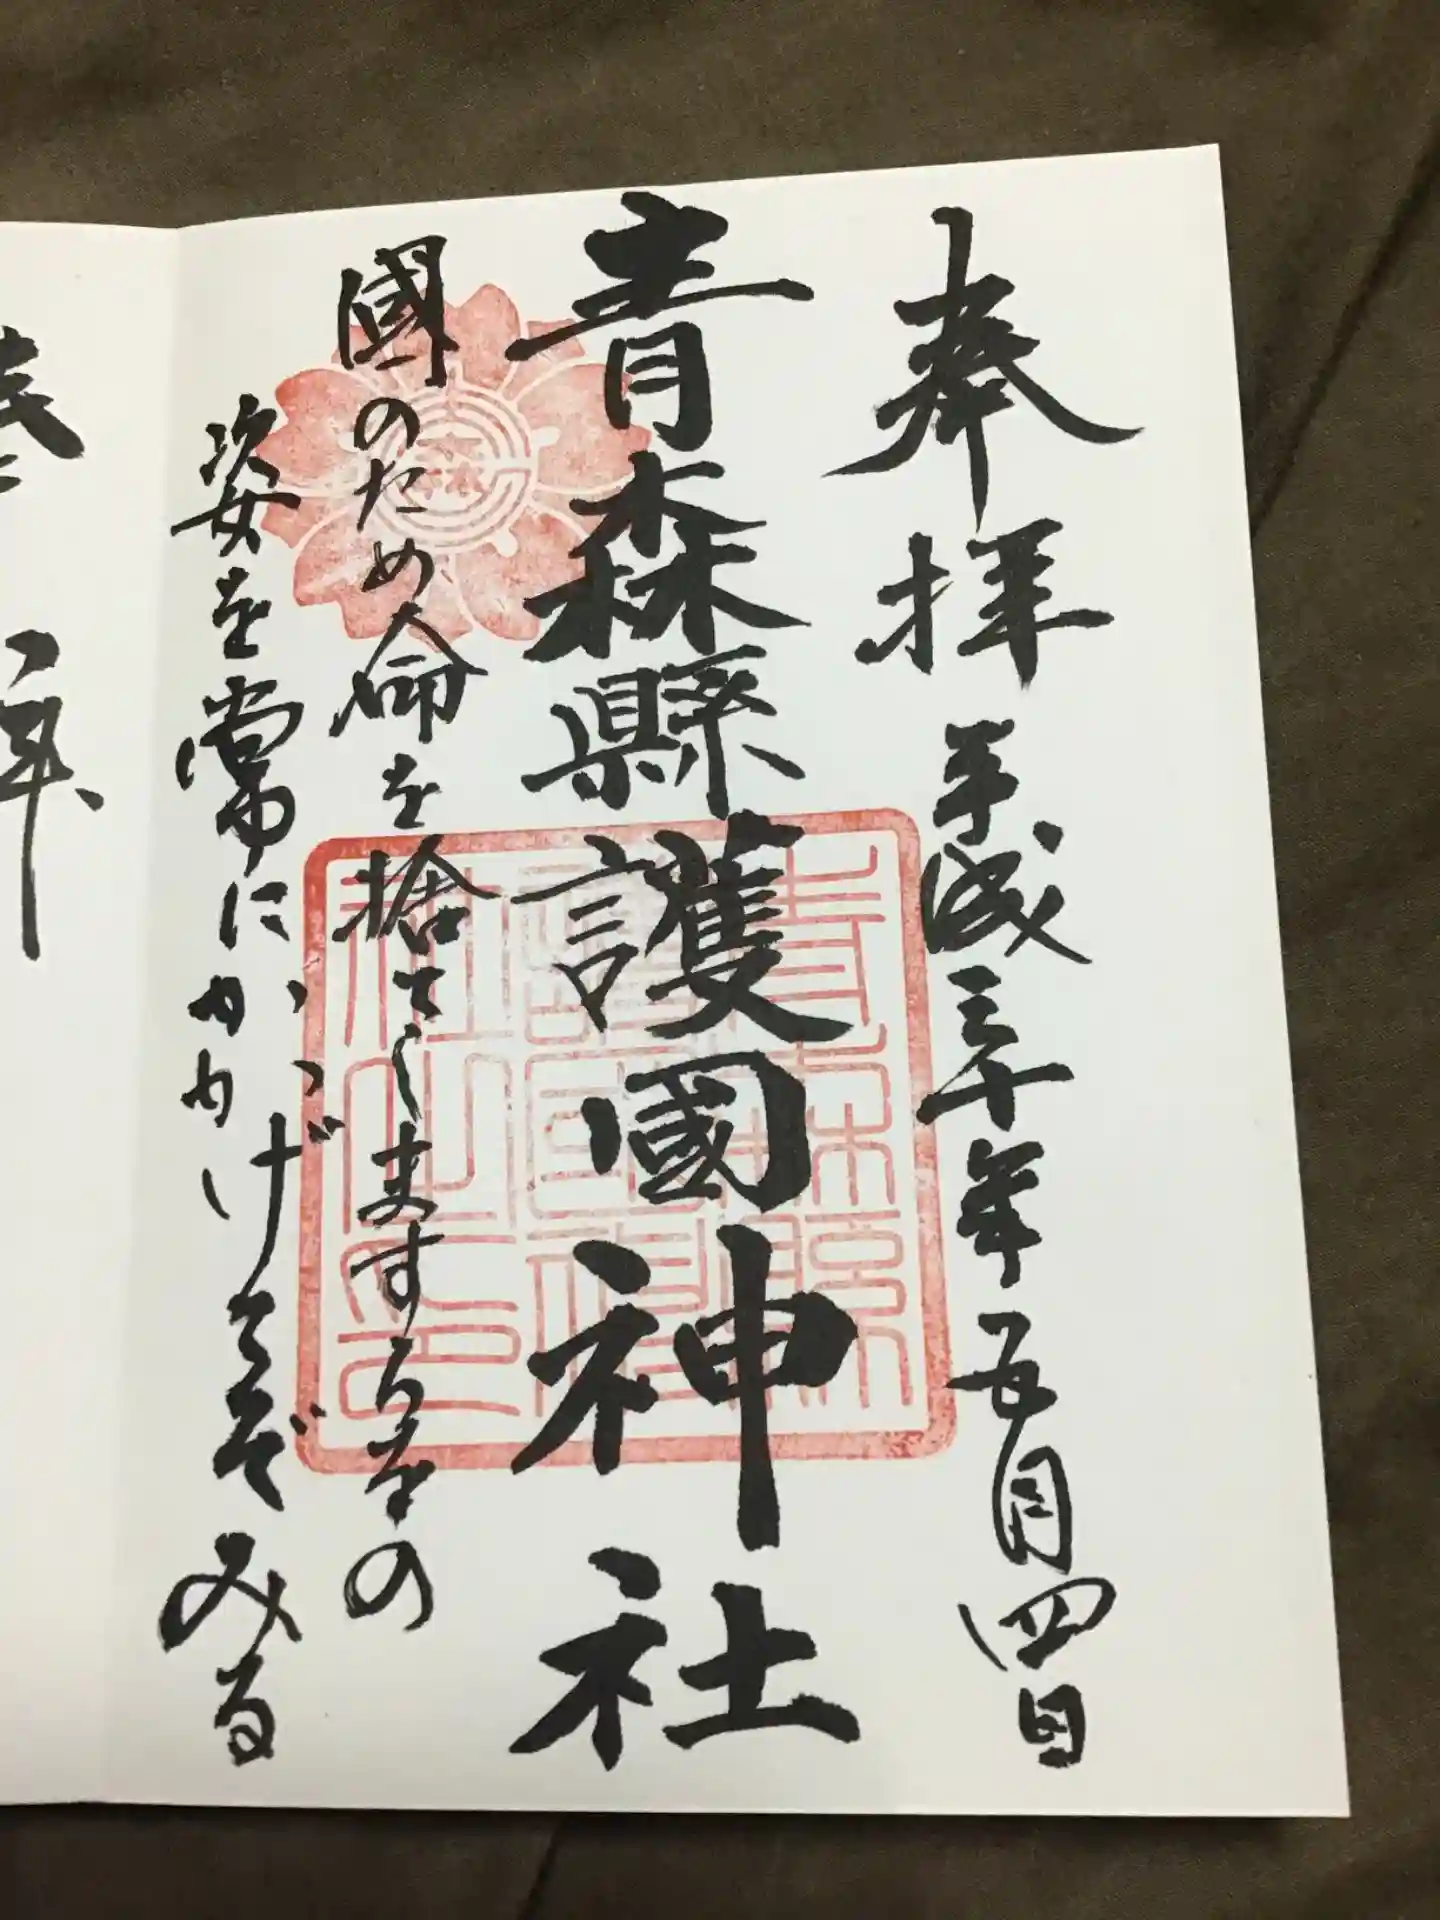 奉拝 平成三十年五月四日
青森縣護國神社
國のため命を捨てしますらをの
姿を常にかかげてぞみる
青森縣
護國神
社之印